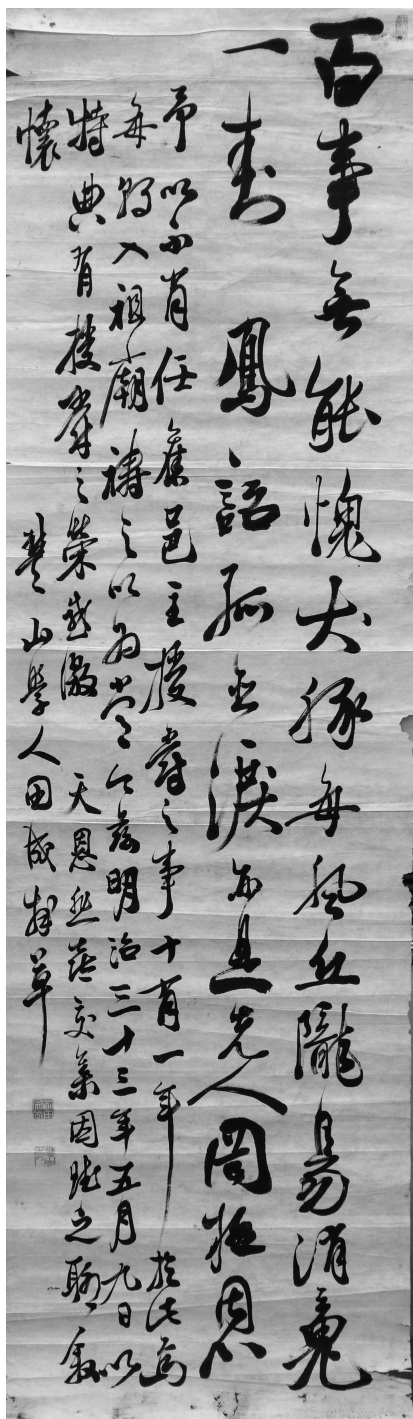 百事無能愧犬豚毎風丘隴易消魂
一封 鳳詔孤臣涙是先人罔極恩
予以不肖任舊邑主授爵之事十有一年於此焉
毎入祖廟禱之以為常今茲明治三十三年五月九日以
特典有授爵之榮感激 天恩悲喜交集因賦之聊叙
懷 楚山學人田成草